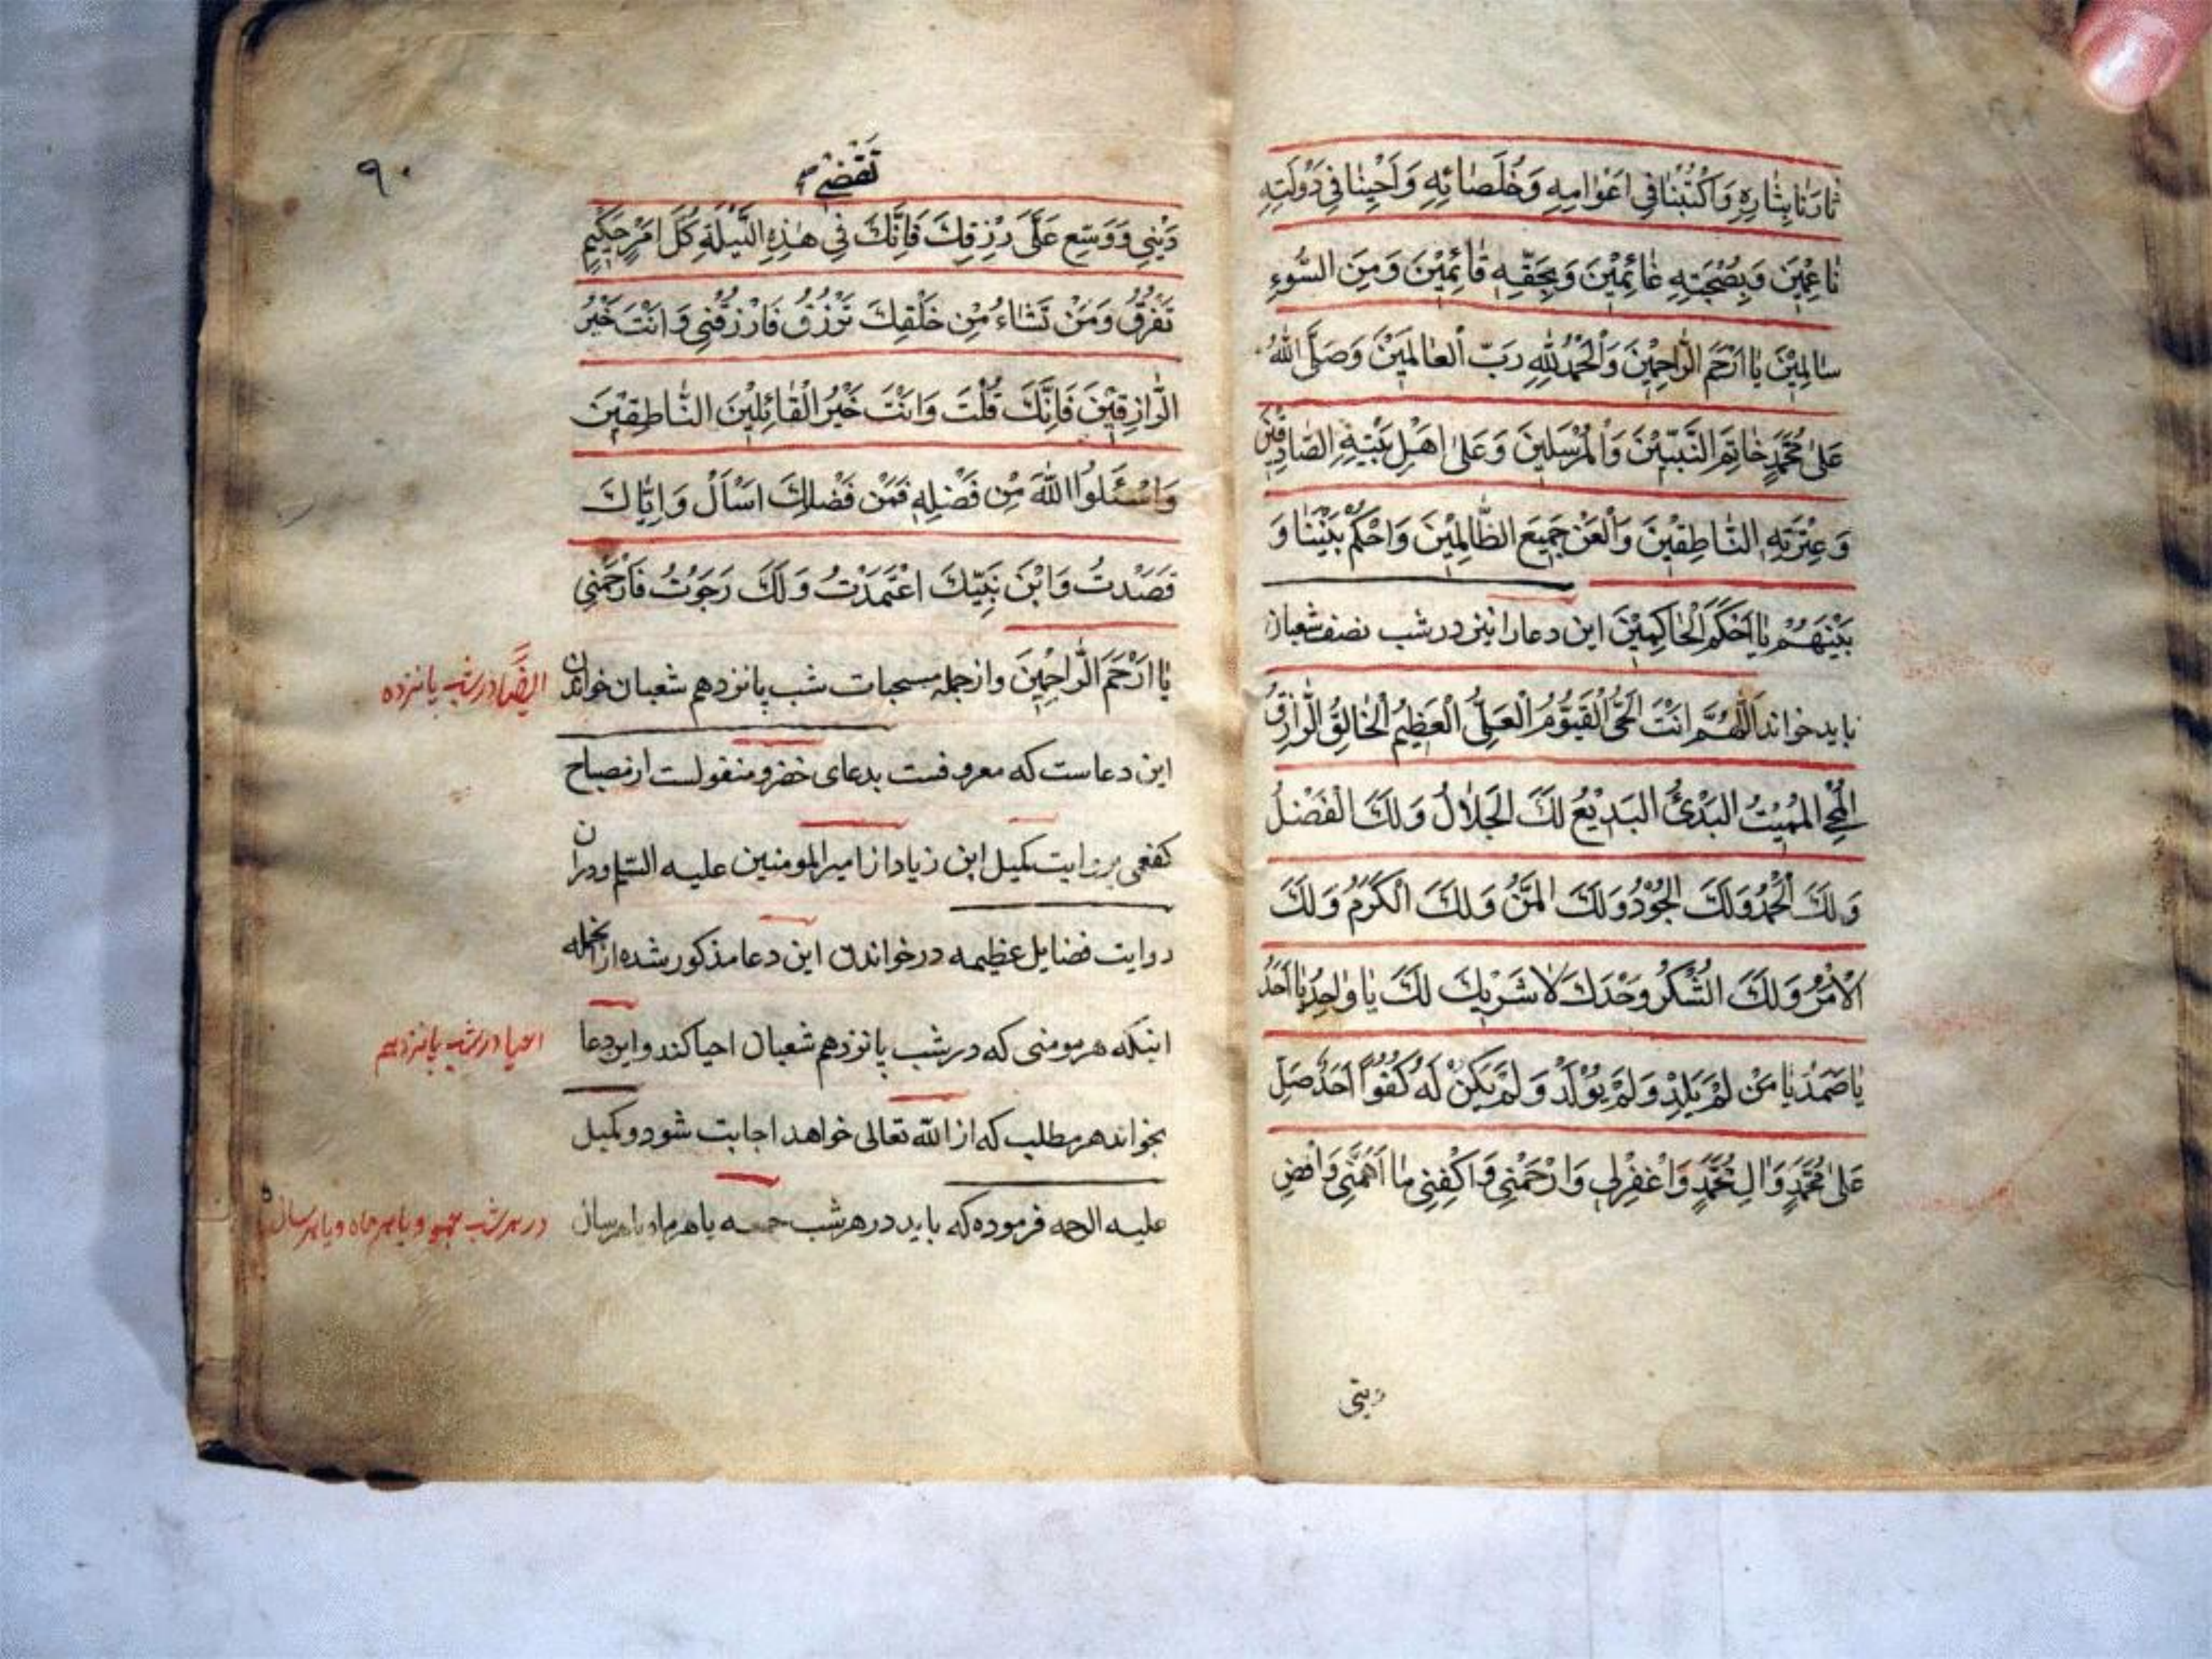 ثَارَنَا بِثَارِهِ وَاكْتُبْنَا فِي اَعْوَامِهِ وَخُلَصَائِهِ وَاَحْيِنَا فِي دَوْلَتِهِ
نَاعِمِيْنَ وَبِصُحْبَتِهِ غَانِمِيْنَ وَبِحَقِّهِ قَائِمِيْنَ وَمِنَ السُّوءِ
سَالِمِيْنَ يَا اَرْحَمَ الرَّاحِمِيْنَ وَالْحَمْدُ لِلّٰهِ رَبِّ الْعَالَمِيْنَ وَصَلَّى اللهُ
عَلىٰ مُحَمَّدٍ خَاتِمَ النَّبِيِّيْنَ وَالْمُرْسَلِينَ وَعَلىٰ اَهْلِ بَيْتِهِ الصَّادِقِيْنَ
وَعِتْرَتِهِ النَّاطِقِيْنَ وَالْعَنْ جَمِيعَ الظَّالِمِيْنَ وَاحْكُمْ بَيْنَنَا وَ
بَيْنَهُمْ يَا اَحْكَمَ الْحَاكِمِيْنَ این دعا را نیز در شب نصف شعبان
باید خواند اَللّٰهُمَّ اَنْتَ الْحَيُّ الْقَيُّوْمُ الْعَلِيُّ الْعَظِيْمُ الْخَالِقُ الرَّازِقُ
الْمُحْيِ الْمُمِيْتُ الْبَدِئُ الْبَدِيْعُ لَكَ الْجَلَالُ وَلَكَ الْفَضْلُ
وَلَكَ الْحَمْدُ وَلَكَ الْجُوْدُ وَلَكَ الْمَنُّ وَلَكَ الْكَرَمُ وَلَكَ
الْاَمْرُ وَلَكَ الشُّكْرُ وَحْدَكَ لَا شَرِيْكَ لَكَ يَا وَاحِدُ يَا اَحَدُ
يَا صَمَدُ يَا مَنْ لَمْ يَلِدْ وَلَمْ يُوْلَدْ وَلَمْ يَكُنْ لَهُ كُفُوًا اَحَدٌ صَلِّ
عَلىٰ مُحَمَّدٍ وَآلِ مُحَمَّدٍ وَاغْفِرْلِي وَارْحَمْنِي وَاكْفِنِي مَا اَهَمَّنِي وَاقْضِ
دینی
۹۰
تَقْضِي
دَيْنِي وَوَسِّعْ عَلَيَّ رِزْقِكَ فَاِنَّكَ فِي هٰذِهِ اللَّيْلَةِ كُلَّ اَمْرٍ حَكِيْمٍ
تَفْرُقُ وَمَنْ تَشَاءُ مِنْ خَلْقِكَ تَرْزُقُ فَارْزُقْنِي وَاَنْتَ خَيْرُ
الرَّازِقِيْنَ فَاِنَّكَ قُلْتَ وَاَنْتَ خَيْرُ الْقَائِلِيْنَ النَّاطِقِيْنَ
وَاسْئَلُوا اللهَ مِنْ فَضْلِهِ فَمِنْ فَضْلِكَ اَسْاَلُ وَاِيَّاكَ
قَصَدْتُ وَابْنَ نَبِيِّكَ اعْتَمَدْتُ وَلَكَ رَجَوْتُ فَارْحَمْنِي
يَا اَرْحَمَ الرَّاحِمِيْنَ واز جمله مستحبات شب پانزدهم شعبان خواندن
ایضًا در شب پانزده
این دعاست که معروفست بدعای خضر و منقولست از مصباح
کفعمی بروایت کمیل ابن زیاد از امیرالمومنین علیه السلم و در ان
روایت فضایل عظیمه در خواندن این دعا مذکور شده از انجمله
اینکه هر مومنی که در شب پانزدهم شعبان احیا کند و این دعا
احیا در شب پانزدهم
بخواند هر مطلب که از الله تعالی خواهد اجابت شود و کمیل
علیه الرحمه فرموده که باید در هر شب جمعه یا هر ماه یا هر سال
در هر شب جمعه و یا هر ماه و یا هر سال